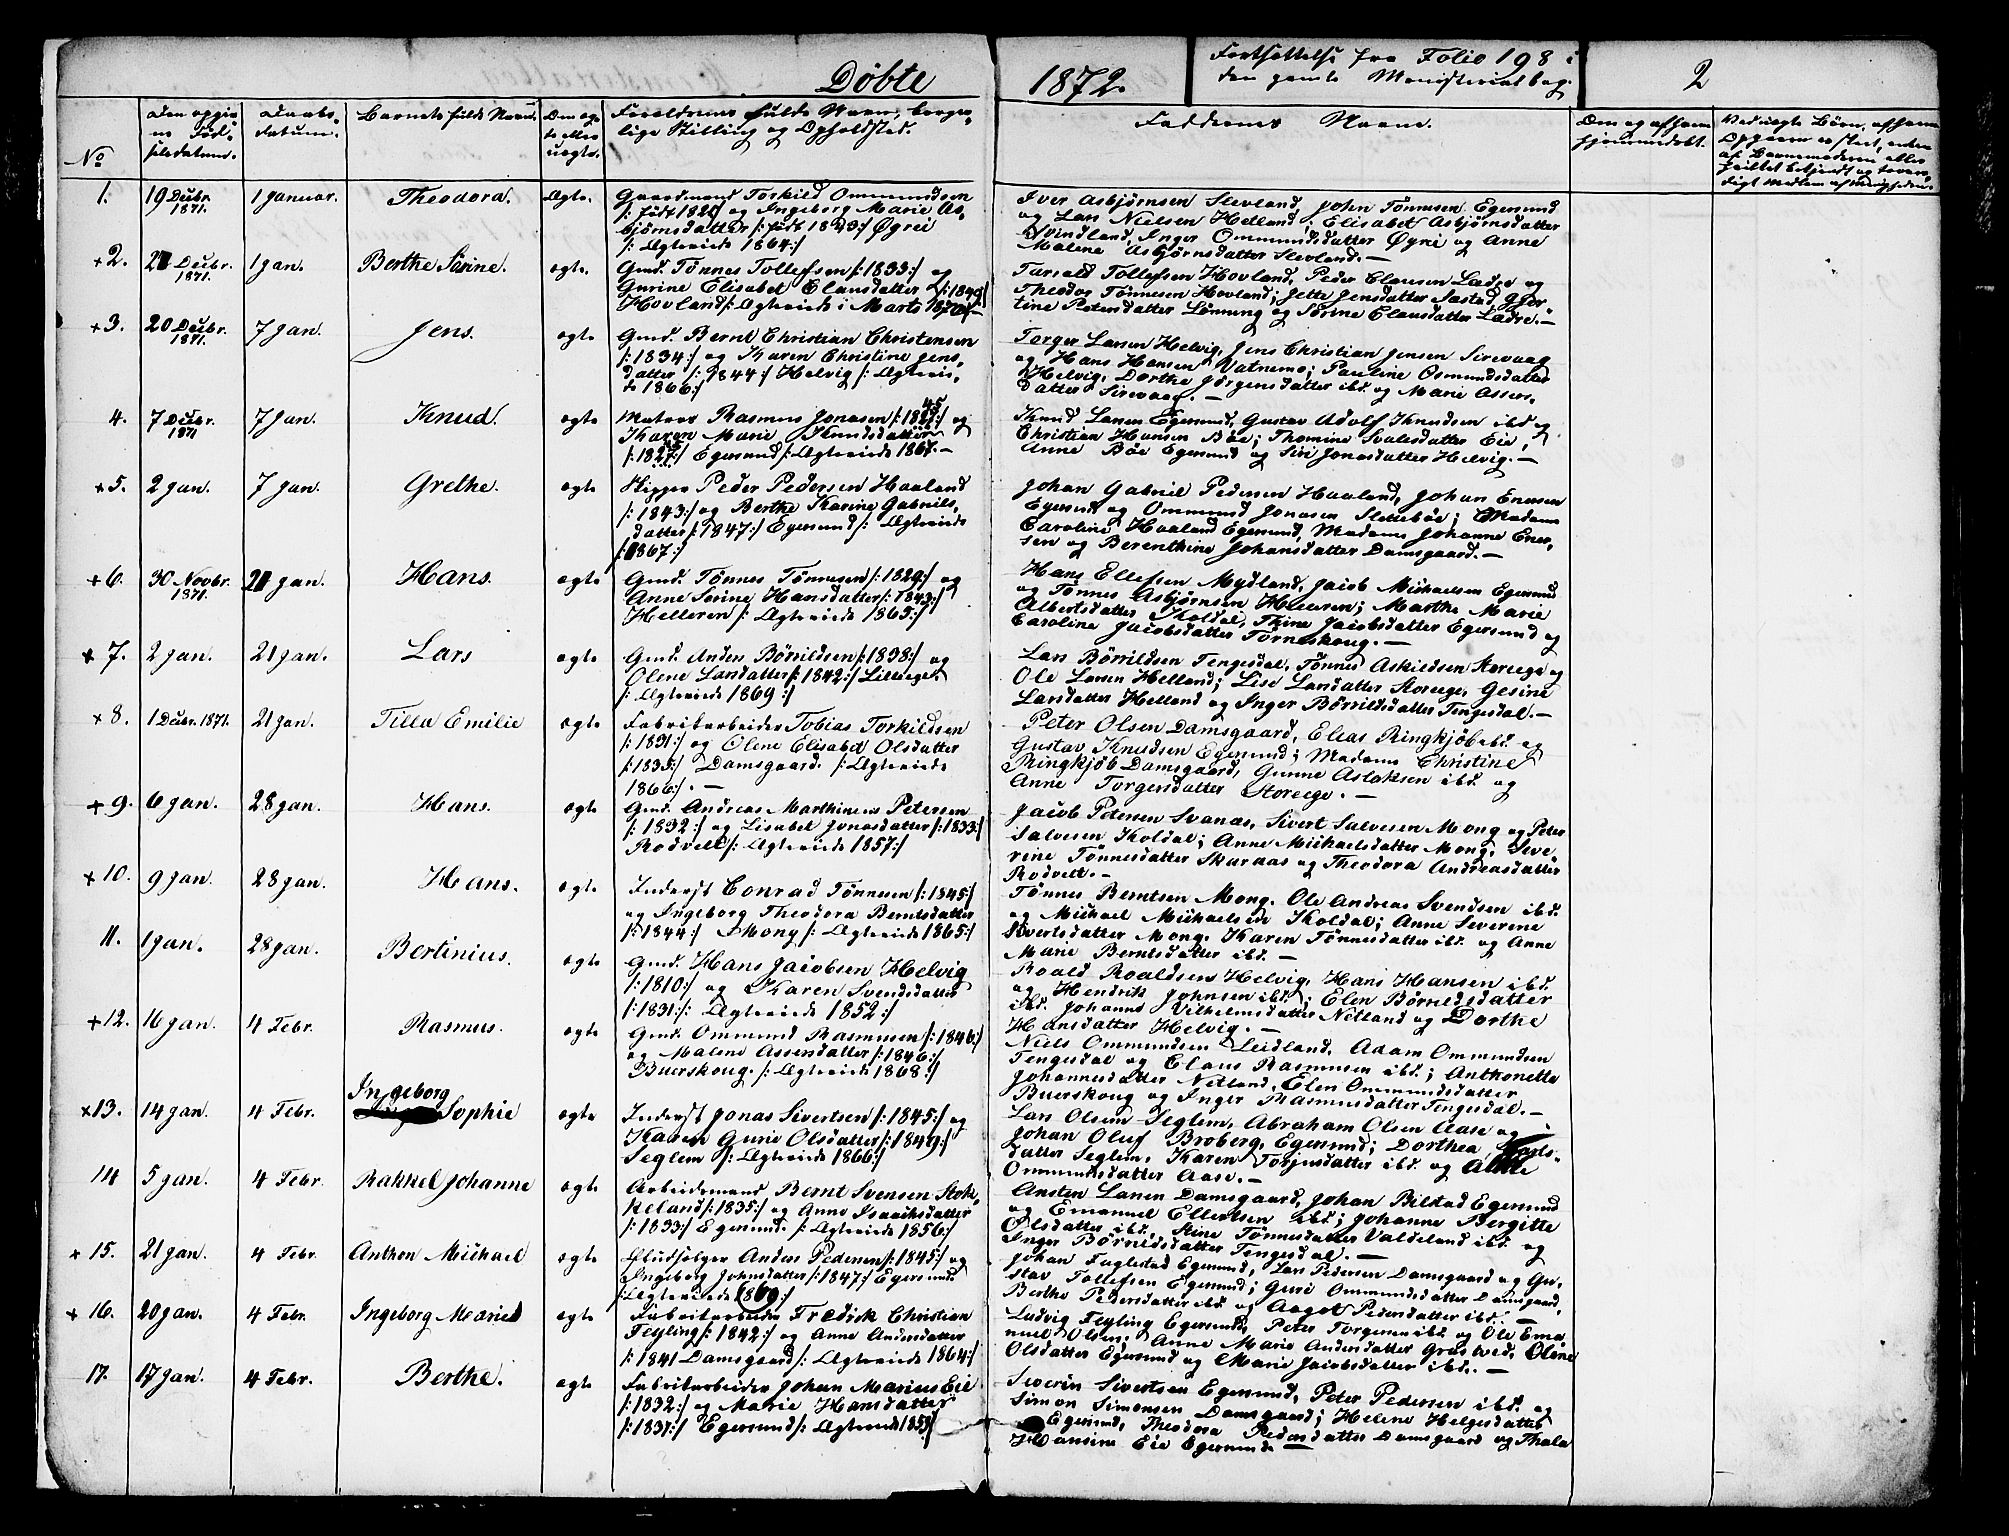 Døbte
1872.
Fortsættelse fra Folio 198 i
den gamle Ministerialbog.
2
No
Den opgiv
ne Fød-
selsdatum.
Daabs-
datum.
Barnets fulde Navn.
Om æg-
te eller
uægte.
Forældrenes fulde Navn, borger-
lige Stilling og Opholdssted.
Faddernes Navne.
Om og af hvem
hjemmedøbt.
1.
19 Decbr.
1871.
1 Januar.
Theodora.
Ægte.
Gaardmand Torkild Ommundsen
/: født 182 og Ingeborg Marie As-
bjørnsdatter /: født 1823:/ Øgrei
/: Ægteviede 1864:/
Iver Asbjørnsen Slevland, John Tønnesen Egersund
og Lars Nielsen Hetland; Elisabet Asbjørnsdatter
Svindland, Inger Ommundsdatter Øgrei og Anne
Malene Asbjørnsdatter Slevland.—
+2.
2 Decbr.
1871.
1 Jan.
Berthe Serine.
ægte.
Gmd. Tønnes Tollefsen /: 1833:/ og
Gurine Elisabet Clausdatter /: 1849:/
Hovland /: Ægteviede i Marts 1870:/—
Tarald Tollefsen Hovland, Peder Clausen Ladre og
Theodor Tønnesen Hovland; Jette Jensdatter Sæstad, Gjør-
tine Petersdatter Lønning og Serine Clausdatter Ladre.—
+3.
20 Decbr.
1871.
7 Jan.
Jens.
ægte
Gmd. Bernt Christian Christensen
/: 1834:/ og Karen Christine Jens-
datter /: 1844:/ Helvig /: Ægtevie-
de 1866:/
Torger Larsen Helvig, Jens Christian Jensen Sirevaag
og Hans Hansen Vatnemo; Pauline Osmundsdatter
Helvig, Dorthe Jørgensdatter ibd. og Marie Assers-
datter Sirevaag.—
4.
7 Decbr.
1871
7 Jan.
Knud.
ægte
Matros Rasmus Jonasen /: 1845:/ og
Karen Marie Knudsdatter
/: 1827:/ Egersund /: Ægteviede 1867.—
Knud Larsen Egersund, Gustav Adolf Knudsen ibd. og
Christian Hansen Bøe; Thomine Svalesdatter Eie,
Anne Bøe Egersund og Siri Jonasdatter Helvig.—
+5.
2 Jan.
7 Jan.
Grethe.
ægte
Skipper Peder Pedersen Haaland
/: 1843:/ og Berthe Karine Gabriels-
datter /: 1847:/ Egersund /: Ægteviede
/: 1867:/
Johan Gabriel Pedersen Haaland, Johan Enersen
Egersund og Ommund Jonasen Slettebøe; Madame
Caroline Haaland Egersund, Madame Johanne Ener-
sen og Berenthine Johansdatter Damsgaard.—
+6.
30 Novbr.
1871.
21 Jan.
Hans.
ægte
Gmd. Tønnes Tønnesen /: 1829:/ og
Anne Serine Hansdatter /: 1843:/
Helleren /: Ægteviede 1865:/
Hans Ellefsen Mydland, Jacob Michaelsen Egersund
og Tønnes Asbjørnsen Helleren; Marthe Marie
Albertsdatter Koldal, Thine Jacobsdatter Egersund og
Caroline Jacobsdatter Tørneskoug.—
+7.
2 Jan.
21 Jan.
Lars
ægte
Gmd. Anders Børrildsen /: 1838:/ og
Olene Larsdatter /: 1842:/ Lilleege.
/: Ægteviede 1869:/
Lars Børrildsen Tengesdal, Tønnes Askildsen Storeege og
Ole Larsen Helland; Lise Larsdatter Storeege, Gesine
Larsdatter Helland og Inger Børrildsdatter Tengesdal.—
+8.
1 Decbr. 1871.
21 Jan.
Tilla Emilie
ægte
Fabrikarbeider Tobias Torkildsen
/: 1831:/ og Olene Elisabet Olsdatter
/: 1835:/ Damsgaard. /: Ægteviede
1866:/.—
Peter Olsen Damsgaard, Elias Ringkjøb ibd. og
Gustav Knudsen Egersund; Madame Christine
Ringkjøb Damsgaard, Gunne Aslaksen ibd. og
Anne Torgersdatter Storeege.—
+9.
6 Jan.
28 Jan.
Hans.
ægte
Gmd. Andreas Marthinius Petersen
/: 1832:/ og Lisabet Jonasdatter /: 1833:/
Rodvelt /: Ægteviede 1857:/
Jacob Petersen Svanæs, Sivert Salvesen Mong og Peter
Salvesen Koldal; Anne Michaelsdatter Mong, Seve-
rine Tønnesdatter Skaraas og Theodora Andreasdatter
Rodvelt.—
+10.
9 Jan.
28 Jan.
Hans.
ægte
Inderst Conrad Tønnesen /: 1845:/
og Ingeborg Theodora Berntsdatter
/: 1844:/ Mong /: Ægteviede 1865:/
Tønnes Berntsen Mong, Ole Andreas Svendsen ibd.
og Michael Michaelsen Koldal; Anne Severine
Sivertsdatter Mong, Karen Tønnesdatter ibd. og Anne
Marie Berntsdatter ibd.—
11.
1 Jan.
28 Jan.
Bertinius.
ægte
Gmd. Hans Jacobsen Helvig
/: 1810:/ og Karen Svendsdatter
/: 1831:/ /: Ægteviede 1852:/
Roald Roaldsen Helvig, Hans Hansen ibd.
og Hendrik Johnsen ibd.; Elen Børrildsdatter
ibd. Johanne Vilhelmsdatter Netland og Dorthe
Hansdatter Helvig.—
+12.
16 Jan.
4 Febr.
Rasmus.
ægte
Gmd. Ommund Rasmussen /: 1846:/
og Malene Assersdatter /: 1846:/
Buerskoug. /: Ægteviede 1868:/
Niels Ommundsen Leidland, Adam Ommundsen
Tengesdal og Claus Rasmussen ibd.; Anthonette
Johannesdatter Netland, Elen Ommundsdatter
Buerskoug og Inger Rasmusdatter Tengesdal.—
+13.
14 Jan.
4 Febr.
Ingeborg
Sophie
ægte
Inderst Jonas Sivertsen /: 1845:/ og
Karen Gurie Olsdatter /: 1849:/
Seglem /: Ægteviede 1866:/
Lars Olsen Seglem, Abraham Olsen Aase og
Johan Oluf Broberg, Egersund; Dorthea Lars-
datter Seglem, Karen Torjusdatter ibd. og
Ommundsdatter Aase.—
14
5 Jan.
4 Febr.
Rakkel Johanne
ægte
Arbeidsmand Bernt Svensen Stok-
keland /: 1835:/ og Anne Isaachsdatter
/: 1833:/ Egersund. /: Ægteviede 1856:/
Ansten Larsen Damsgaard, Johan Bilstad Egersund
og Emanuel Ellertsen ibd.; Johanne Bergitte
Olsdatter ibd., Stine Tønnesdatter Valdeland ibd. og
Inger Børrildsdatter Tengesdal.—
+15.
21 Jan.
4 Febr.
Anthon Michael
ægte
Anders Pedersen /: 1845:/ og
Ingeborg Johnsdatter /: 1847:/ Egersund
/: Ægteviede 1869:/
Johan Fuglestad Egersund, Lars Pedersen Damsgaard og Gu-
stav Tollefsen Egersund; Guri Ommundsdatter Damsgaard,
Berthe Pedersdatter ibd. og Aagot Pedersdatter ibd.—
+16.
20 Jan.
4 Febr.
Ingeborg Marie
ægte
Fabrikarbeider Fredrik Christian
Feyling /: 1842:/ og Anne Andersdatter
/: 1841 Damsgaard /: Ægteviede 1864:/
Ludvig Feyling Egersund, Peter Torgersen ibd. og Ole Ema-
nuel Olsen; Anne Marie Andersdatter Græsved, Oline
Olsdatter Egersund og Marie Jacobsdatter ibd.—
17.
17 Jan.
4 Febr.
Berthe.
ægte
Fabrikarbeider Johan Marius Eie
/: 1832:/ og Marie Hansdatter
/: 1837:/ Egersund /: Ægteviede 1853:/
Severin Sivertsen Egersund, Peter Pedersen ibd. og
Simon Simonsen Damsgaard; Helene Helgesdatter
Egersund, Theodora Pedersdatter Damsgaard og Thala
Hansine Eie Egersund—